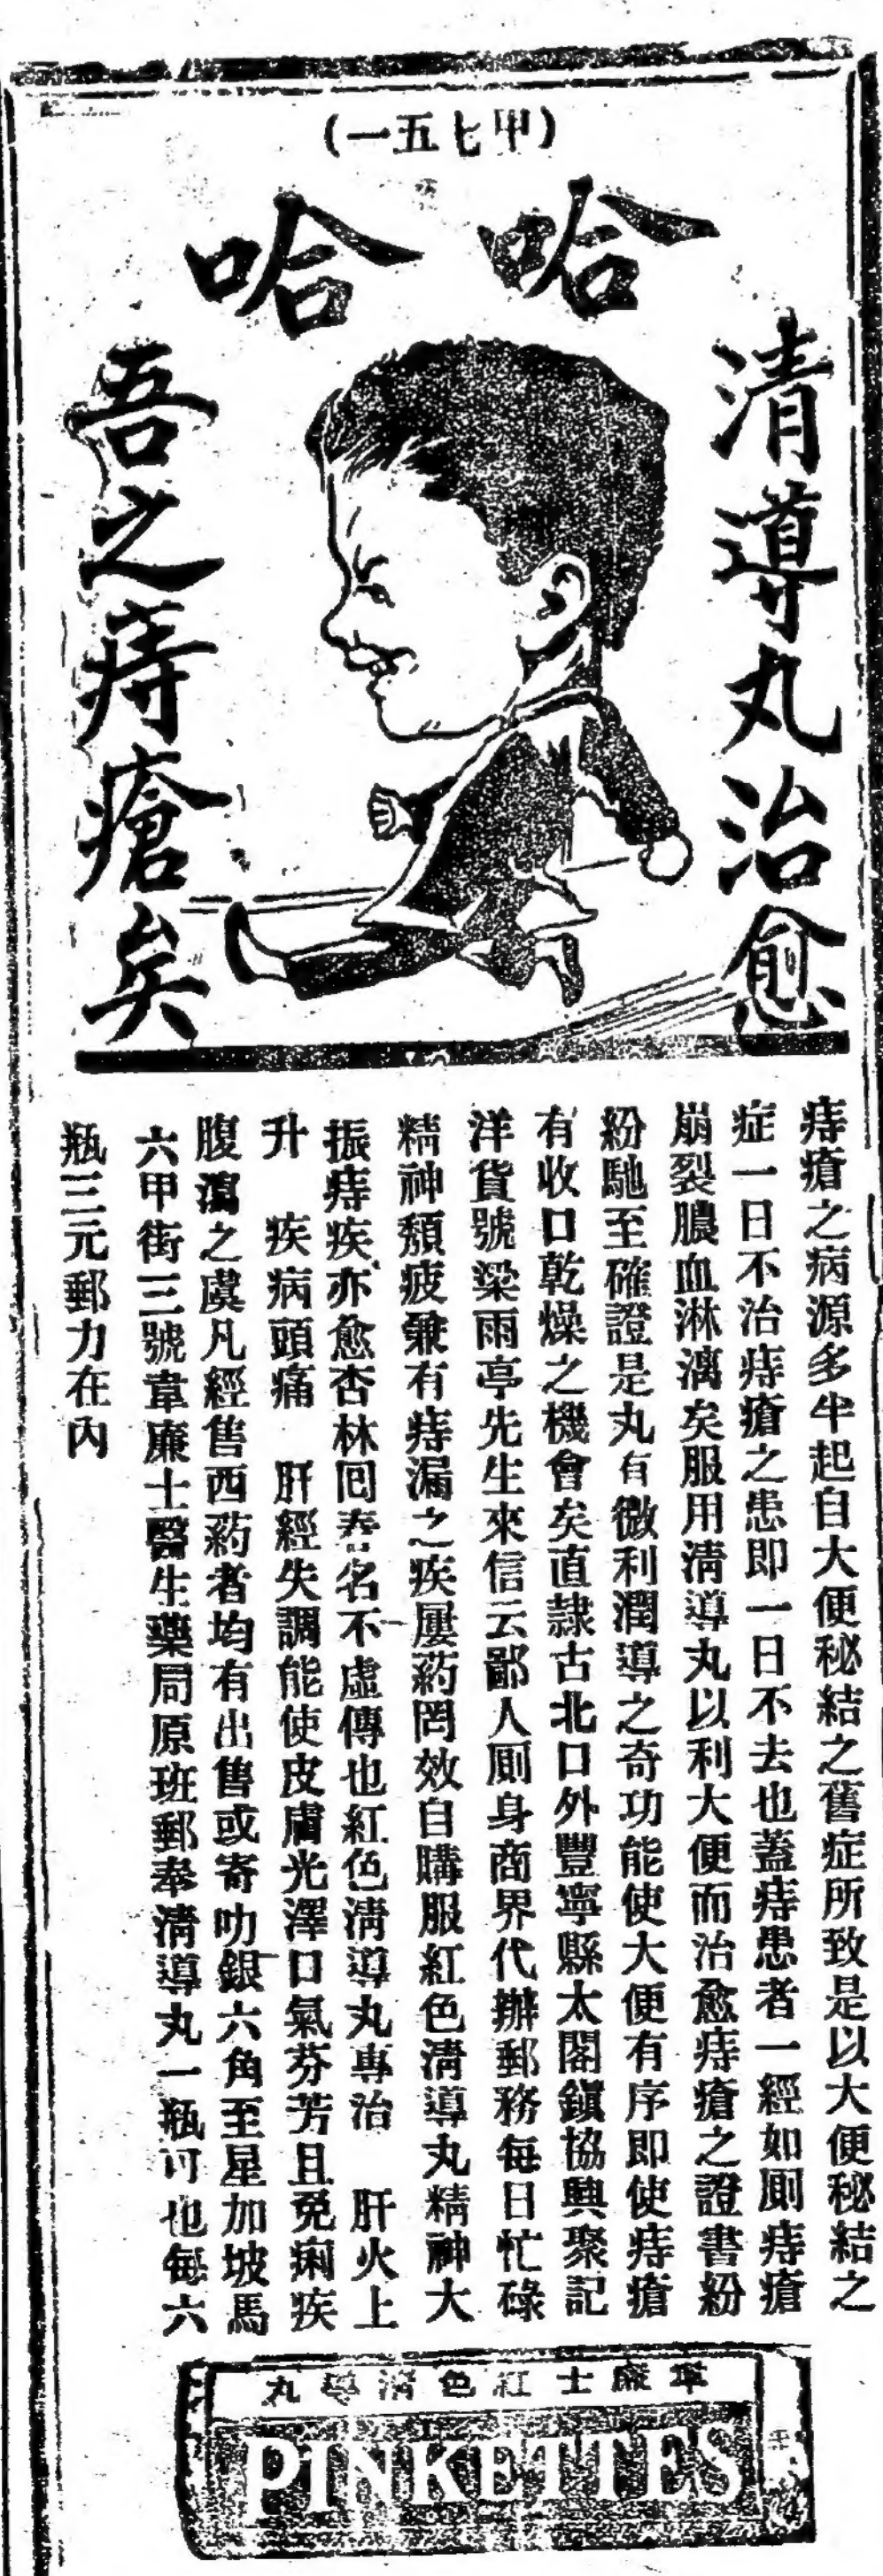 （甲七五一）
哈哈
清導丸治愈
吾之痔瘡矣
痔瘡之病源多半起自大便秘結之舊症所致是以大便秘結之
症一日不治痔瘡之患即一日不去也蓋痔患者一經如厠痔瘡
崩裂膿血淋漓矣服用清導丸以利大便而治愈痔瘡之證書紛
紛馳至確證是丸有微利潤導之奇功能使大便有序即使痔瘡
有收口乾燥之機會矣直隸古北口外豐寧縣太閣鎭協興聚記
洋貨號梁雨亭先生來信云鄙人厠身商界代辦郵務每日忙碌
精神頹疲兼有痔漏之疾屢葯罔效自購服紅色清導丸精神大
振痔疾亦愈杏林囘春名不虛傳也紅色清導丸專治 肝火上
升 疾病頭痛 肝經失調能使皮膚光澤口氣芬芳且免痢疾
腹瀉之虞凡經售西葯者均有出售或寄叻銀六角至星加坡馬
六甲街三號韋廉士醫生藥局原班郵奉清導丸一瓶可也每六
瓶三元郵力在內
韋廉士紅色清導丸
PINKETTES